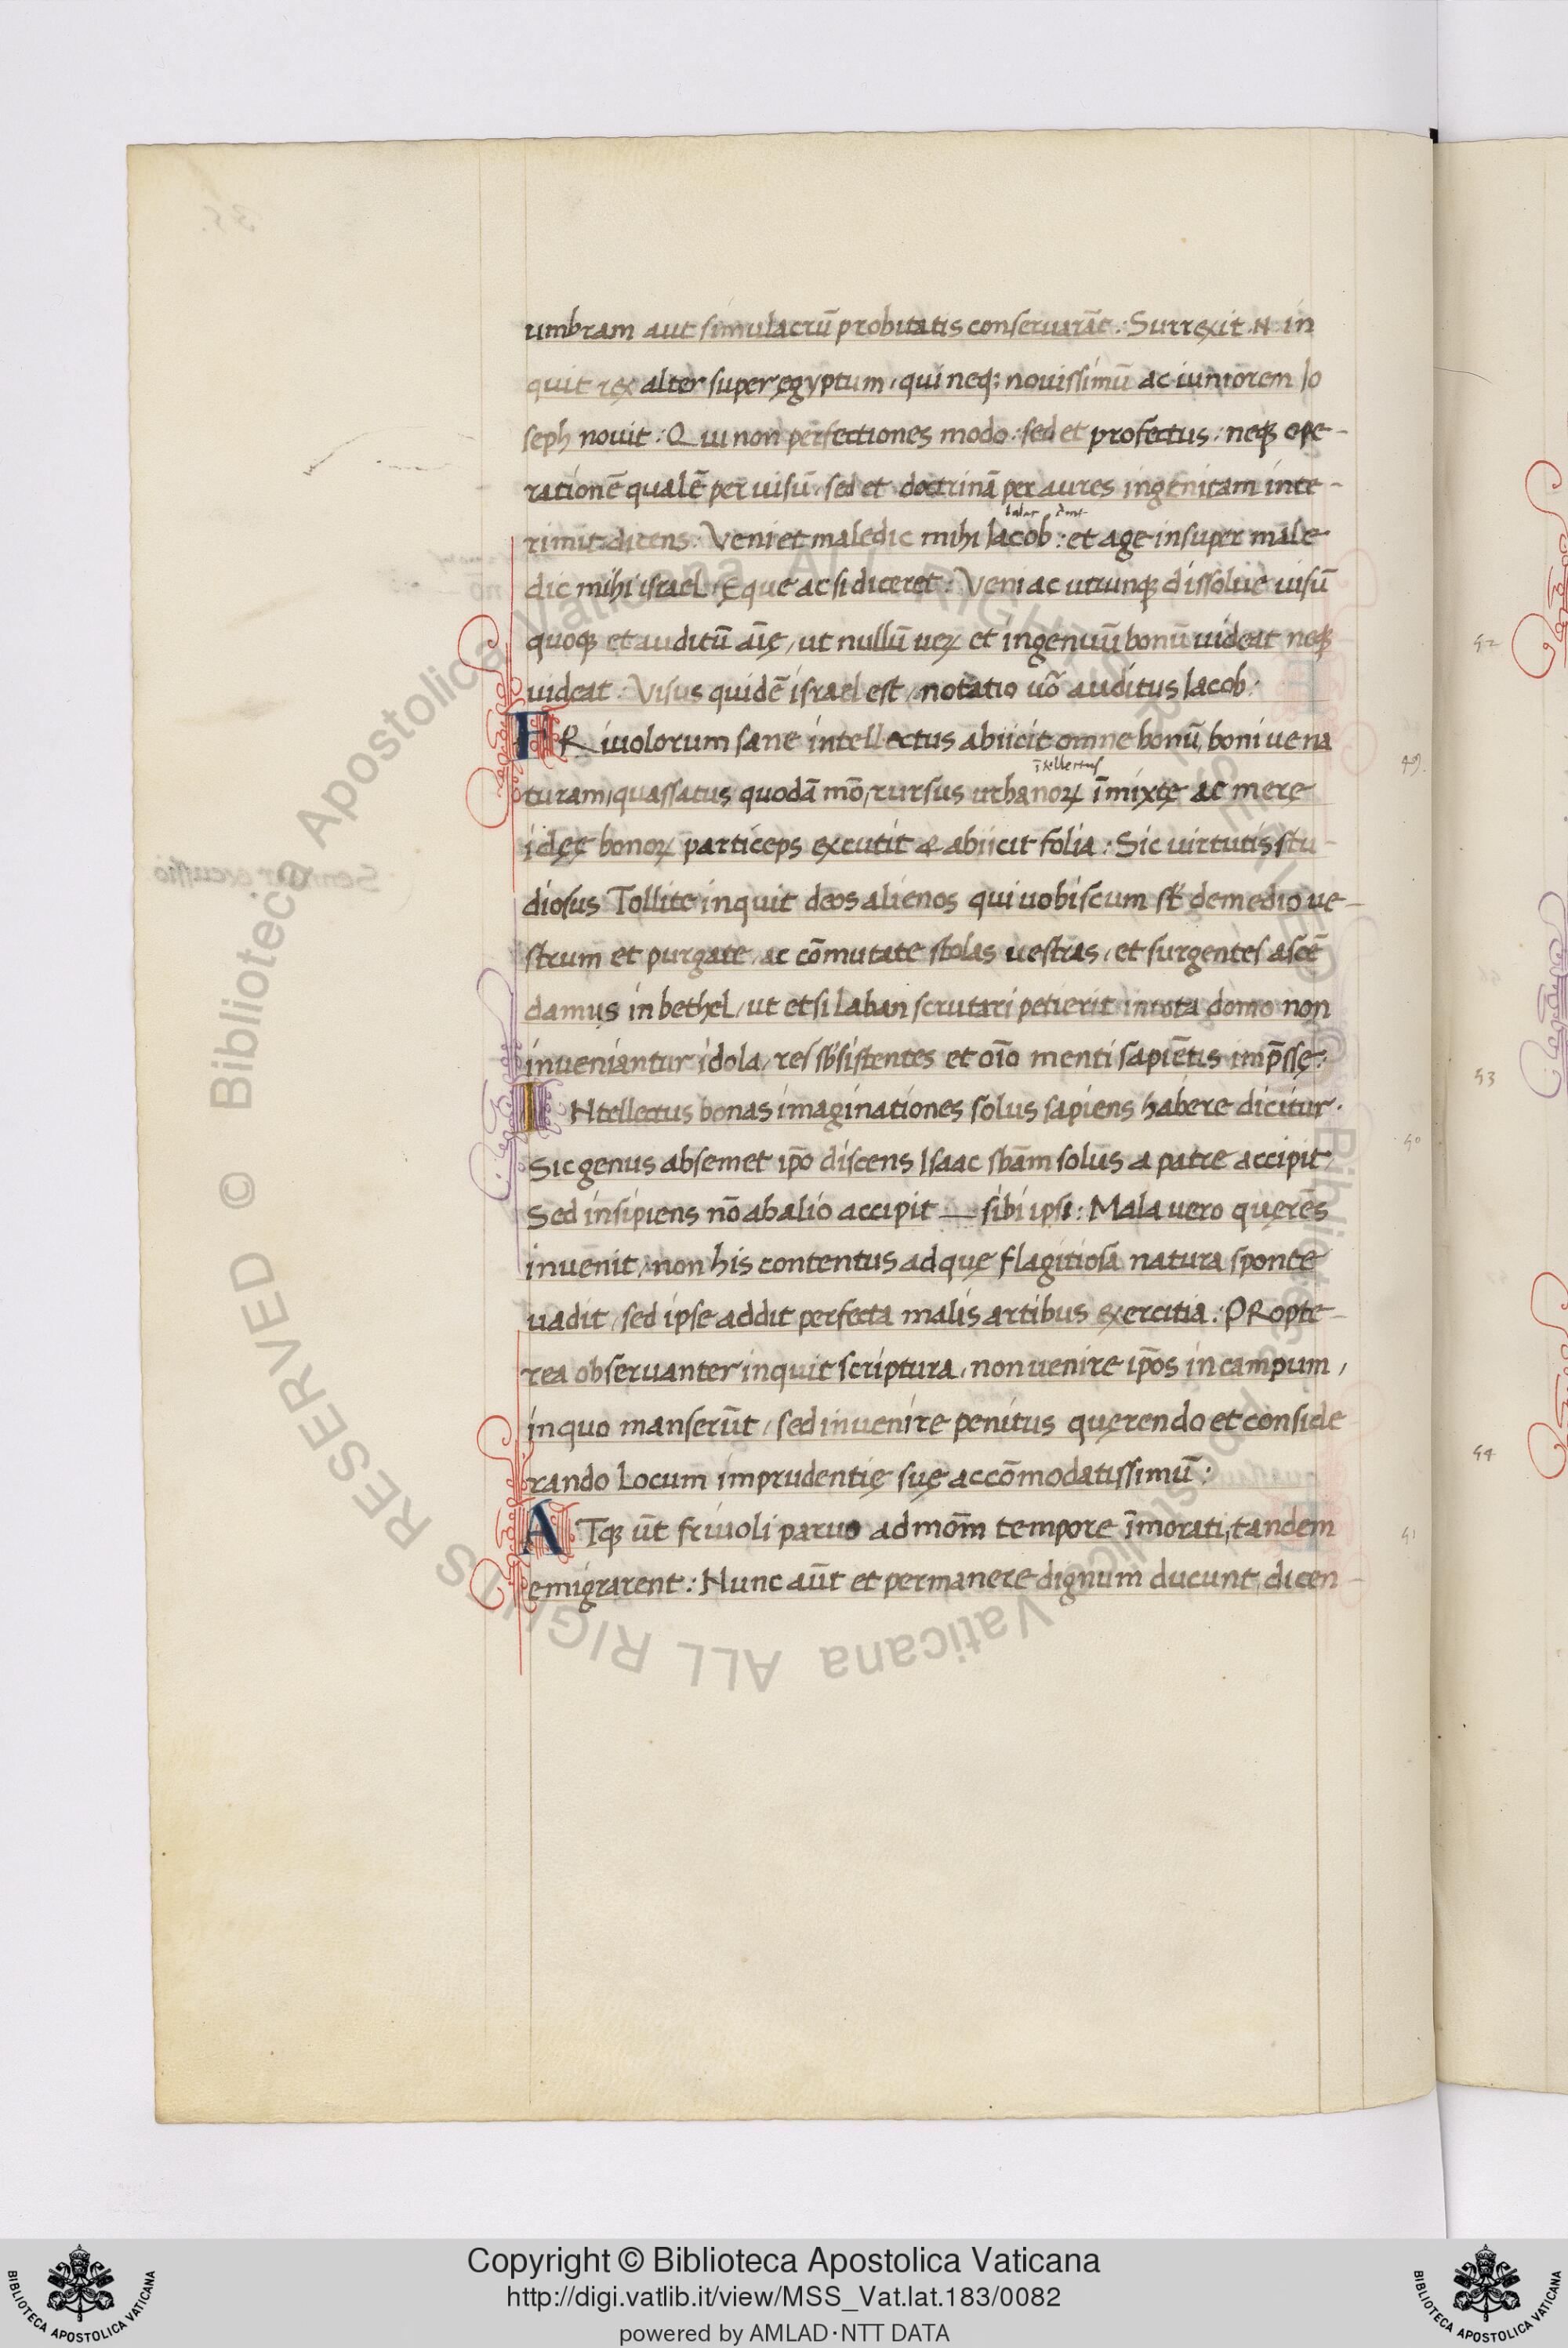 umbram aut simulacrū probitatis conseruarāt: Surrexit .N. in
quit rex alter super ęgyptum, qui neq; nouissimū ac iuniorem Io
seph nouit: Qui non perfectiones modo: sed et profectus: neq; ope-
rationē qualē per uisū: sed et doctrinā per aures ingenitam inte-
rimit: dicens: Veni et maledic mihi Iacob: et age insuper male
dic mihi israel: Ęque ac si diceret: Veni ac utrunq; dissolue uisū
quoq; et auditū aīę, ut nullū ueꝝ et ingenuū bonū uideat neq;
uideat: Visus quidē israel est, notatio uō auditus Iacob:
FRiuolorum sane intellectus abiicit omne bonū, boni ue na
ītellectus
turam, quassatus quodā mō, rursus urbanoꝝ īmixtę ac merę
idęę bonoꝝ particeps excutit & abiicit folia: Sic uirtutis stu-
diosus Tollite inquit deos alienos qui uobiscum st̄ de medio ue-
strum et purgate, ac cōmutate stolas uestras, et surgentes ascē
damus in bethel, ut et si Laban scrutari petierit in tota domo non
inueniantur idola, res sb̄sistentes et oīo menti sapiētis imp̄ssę:
INtellectus bonas imaginationes solus sapiens habere dicitur.
Sic genus ab semet ip̄o discens Isaac sb̄am solus a patre accipit
Sed insipiens nō ab alio accipit — sibi ipsi: Mala uero quęrēs
inuenit, non his contentus ad quę flagitiosa natura sponte
uadit, sed ipse addit perfecta malis artibus exercitia: PRopte-
rea obseruanter inquit scriptura, non uenire ip̄os in campum,
in quo manserūt, sed inuenire penitus quęrendo et conside
rando locum imprudentię suę accōmodatissimū:
ATq; ūt friuoli paruo ad mom̄ tempore īmorati, tandem
emigrarent: Nunc aūt et permanere dignum ducunt, dicen-
49.
50
51
52
53
54
Copyright © Biblioteca Apostolica Vaticana
http://digi.vatlib.it/view/MSS_Vat.lat.183/0082
powered by AMLAD·NTT DATA
BIBLIOTECA APOSTOLICA VATICANA
BIBLIOTECA APOSTOLICA VATICANA
© Biblioteca Apostolica Vaticana ALL RIGHTS RESERVED
© Biblioteca Apostolica Vaticana ALL RIGHTS RESERVED